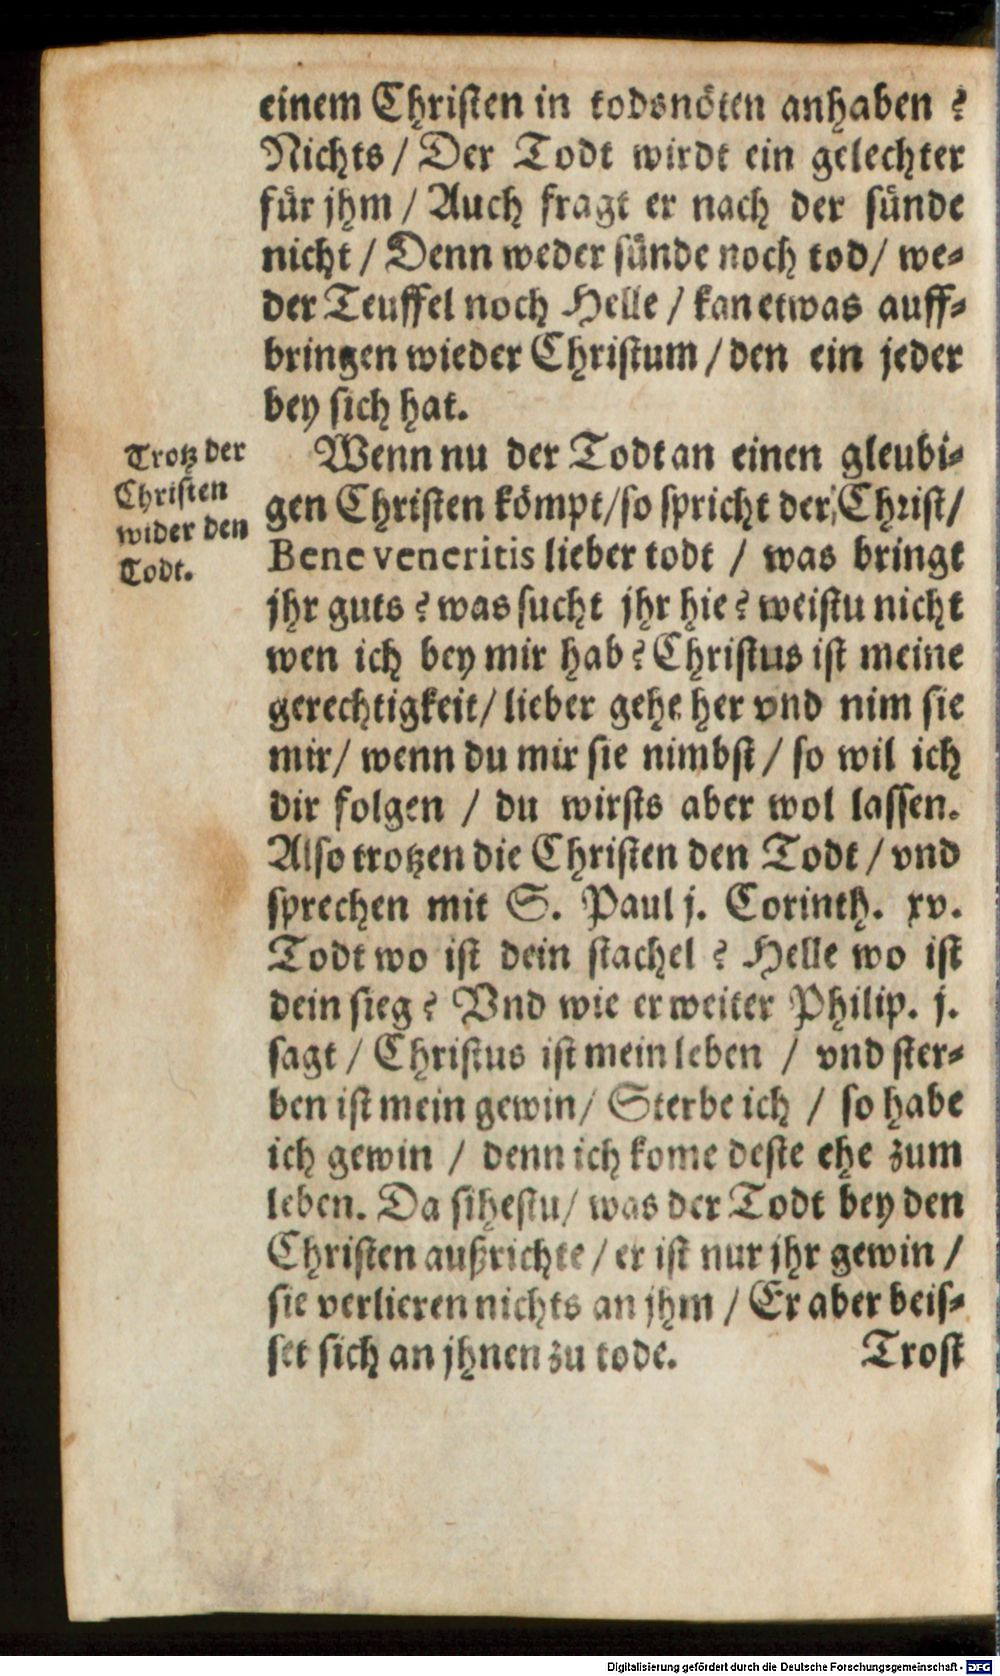 einem Christen in todsnöten anhaben ?
Nichts / Der Todt wirdt ein gelechter
für jhm / Auch fragt er nach der sünde
nicht / Denn weder sünde noch tod / we-
der Teuffel noch Helle / kan etwas auff-
bringen wieder Christum / den ein jeder
bey sich hat.
Trotz der
Christen
wider den
Todt.
Wenn nu der Todt an einen gleubi-
gen Christen kömpt / so spricht der Christ /
Bene veneritis lieber todt / was bringt
jhr guts ? was sucht jhr hie ? weistu nicht
wen ich bey mir hab ? Christus ist meine
gerechtigkeit / lieber gehe her vnd nim sie
mir / wenn du mir sie nimbst / so wil ich
dir folgen / du wirsts aber wol lassen.
Also trotzen die Christen den Todt / vnd
sprechen mit S. Paul j. Corinth. xv.
Todt wo ist dein stachel ? Helle wo ist
dein sieg ? Vnd wie er weiter Philip. j.
sagt / Christus ist mein leben / vnd ster-
ben ist mein gewin / Sterbe ich / so habe
ich gewin / denn ich kome deste ehe zum
leben. Da sihestu / was der Todt bey den
Christen außrichte / er ist nur jhr gewin /
sie verlieren nichts an jhm / Er aber beis-
set sich an jhnen zu tode. Trost
Digitalisierung gefördert durch die Deutsche Forschungsgemeinschaft - DFG